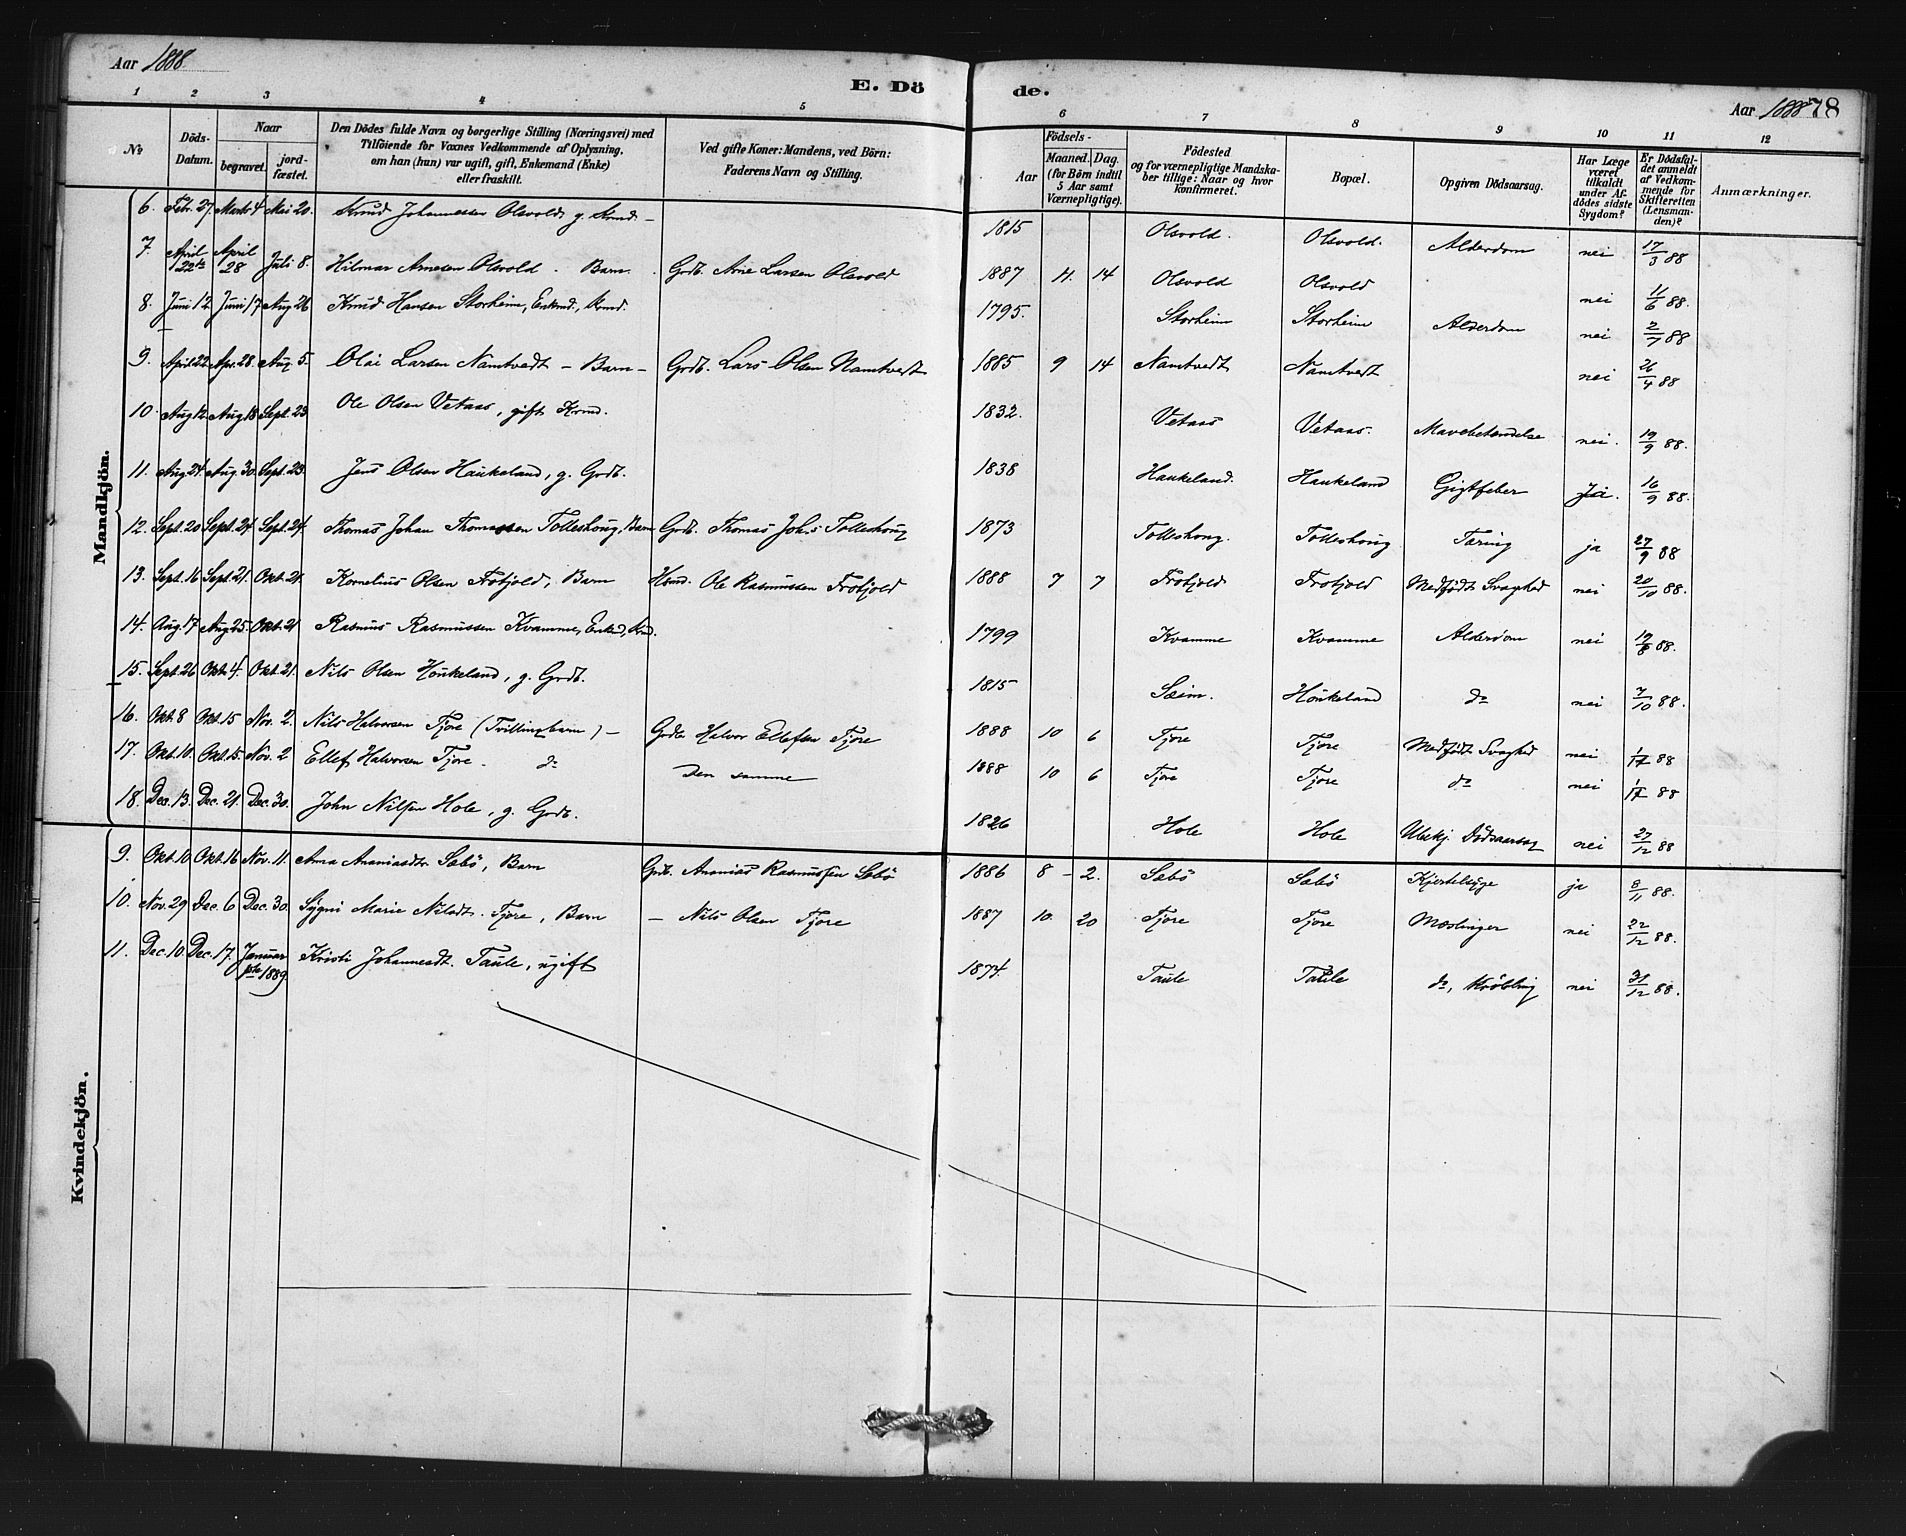 Aar 1888 E. Dö de. Aar 1888 78
1 2 3 4 5 6 7 8 9 10 11 12
No Döds-Datum. Naar begravet. jordfæstet. Den Dödes fulde Navn og borgerlige Stilling (Næringsvei) med Tilföiende for Voxnes Vedkommende af Oplysning, om han (hun) var ugift, gift, Enkemand (Enke) eller fraskilt. Ved gifte Koner: Mandens, ved Börn: Faderens Navn og Stilling. Födsels- Aar Maaned. Dag. (for Börn indtil 5 Aar samt Værnepligtige). Födested og for værnepligtige Mandskaber tillige: Naar og hvor konfirmeret. Bopæl. Opgiven Dödsaarsag. Har Læge været tilkaldt under Afdödes sidste Sygdom? Er Dödsfaldet anmeldt af Vedkommende for Skifteretten (Lensmanden)? Anmærkninger.
Mandkjön.
6. Febr. 27 Marts 4 Mai 20. Knud Johannessen Olsvold g. Kmd. — 1815 Olsvold. Olsvold. Alderdom nei 17/3 88
7. April 22de April 28 Juli 8. Hilmar Arnesen Olsvold. Barn. Grdb. Arne Larsen Olsvold 1887 11. 14 Olsvold Olsvold nei 11/6 88.
8. Juni 12 Juni 17 Aug 26 Knud Hansen Storheim, Enkmd., Kmd. 1795. Storheim Storheim Alderdom nei 2/7 88
9. April 22 Apr. 28. Aug 5. Olai Larsen Namtvedt — Barn — Grdb. Lars Olsen Namtvedt 1885 9 14 Namtvedt Namtvedt nei 26/4 88
10. Aug 12 Aug 18 Sept. 23 Ole Olsen Vetaas, gift Kmd. 1832. Vetaas Vetaas. Mavebetændelse nei. 19/9 88.
11. Aug. 24 Aug. 30. Sept. 23. Jens Olsen Haukeland, g. Grdb. 1838 Haukeland. Haukeland Gigtfeber Ja. 16/9 88.
12. Sept. 20 Sept. 24 Sept. 24. Thomas Johan Thomassen Tolleshoug, Barn Grdb. Thomas Joh.s Tolleshoug 1873 Tolleshoug. Tolleshoug Tæring ja 27/9 88
13. Sept. 16 Sept. 21. Okt. 21. Kornelius Olsen Frotjold, Barn Hsmd. Ole Rasmussen Frotjold 1888 7 7 Frotjold Frotjold Medfödt Svaghed nei 20/10 88.
14. Aug. 17 Aug 25. Okt. 21 Rasmus Rasmussen Kvamme, Enkmd, Kmd. 1799 Kvamme Kvamme Alderdom nei 19/8 88.
15. Sept. 26 Okt. 4. Okt. 21. Nils Olsen Haukeland, g. Grdb. 1815 Sæim. Haukeland do nei 7/10 88.
16. Okt. 8 Okt. 15 Nov. 2. Nils Halvorsen Tjore (Tvillingbarn) — Grdb Halvor Ellefsen Tjore 1888 10 6 Tjore Tjore Medfödt Svaghed nei 88
17. Okt. 10. Okt. 15. Nov. 2 Ellef Halvorsen Tjore. do Den samme 1888 10 6 Tjore Tjore do nei 88
18. Dec. 13. Dec. 21. Dec. 30. John Nilsen Hole, g. Grdb. 1826 Hole Hole Ubekj. Dödsaarsag nei 27/12 88
Kvindekjön.
9. Okt. 10 Okt. 16 Nov. 11. Anna Ananiasdtr Sæbö, Barn Grdb. Ananias Rasmussen Sæbö 1886 8 — 2. Sæbö Sæbö Kjertelsyge ja 8/11 88.
10. Nov. 29 Dec. 6 Dec. 30. Sygni Marie Nilsdt. Tjore, Barn — Nils Olsen Tjore 1887 10. 20 Tjore Tjore Mæslinger nei 22/12 88.
11. Dec. 10. Dec. 17. Januar 1889. Kristi Johannesdt. Taule, ugift 1874. Taule Taule do, Kröbling nei 31/12 88.